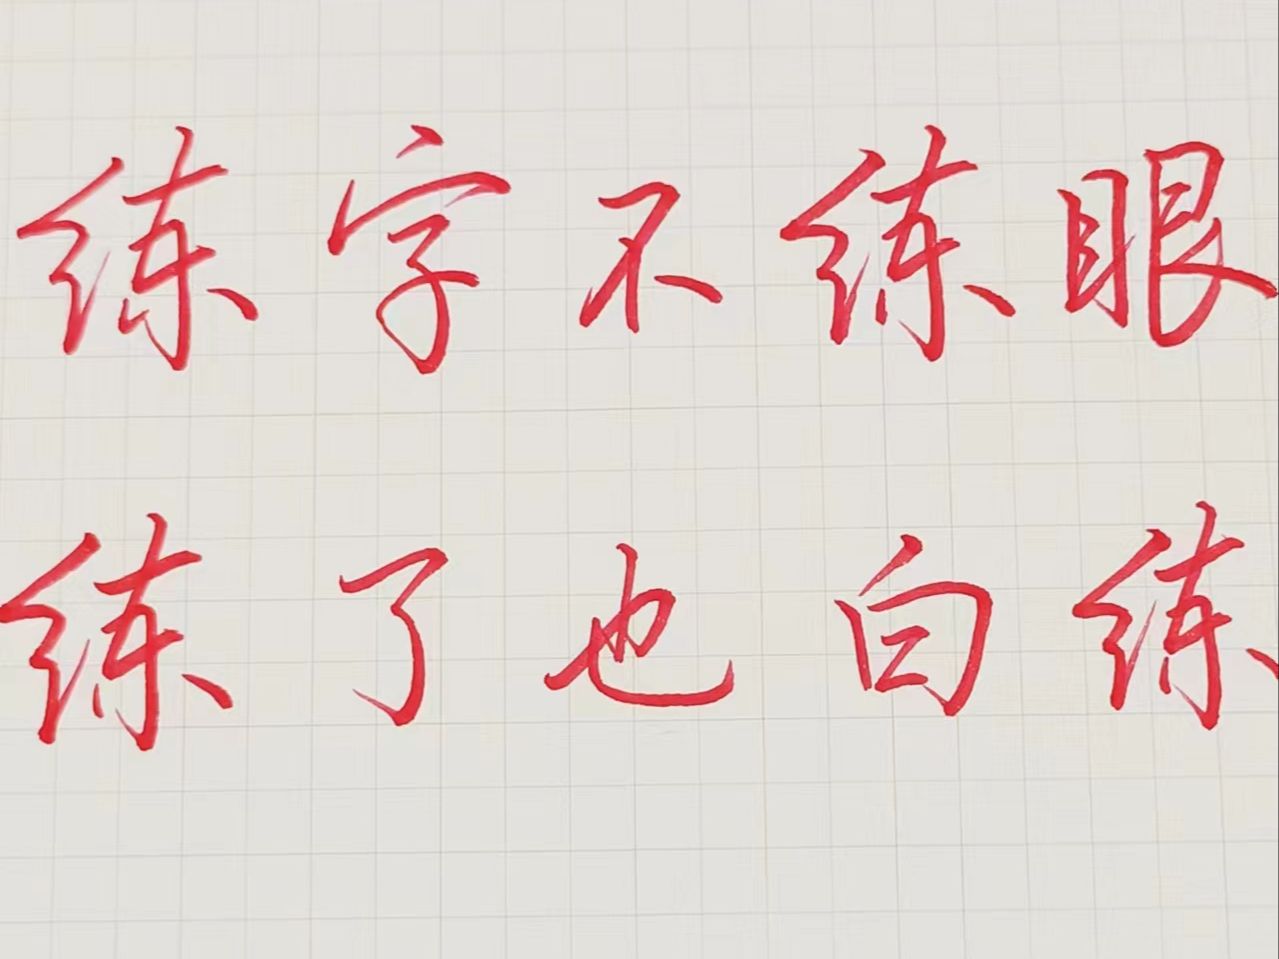 练字不练眼
练了也白练